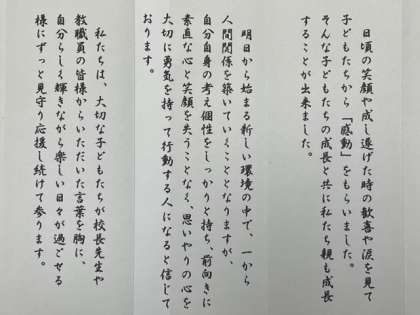 日頃の笑顔や成し遂げた時の歓喜や涙を見て
子どもたちから「感動」をもらいました。
そんな子どもたちの成長と共に私たち親も成長
することが出来ました。
明日から始まる新しい環境の中で、一から
人間関係を築いていくこととなりますが、
自分自身の考え個性をしっかりと持ち、前向きに
素直な心と笑顔を失うことなく、思いやりの心を
大切に勇気を持って行動する人になると信じて
おります。
私たちは、大切な子どもたちが校長先生や
教職員の皆様からいただいた言葉を胸に、
自分らしく輝きながら楽しい日々が過ごせる
様にずっと見守り応援し続けて参ります。